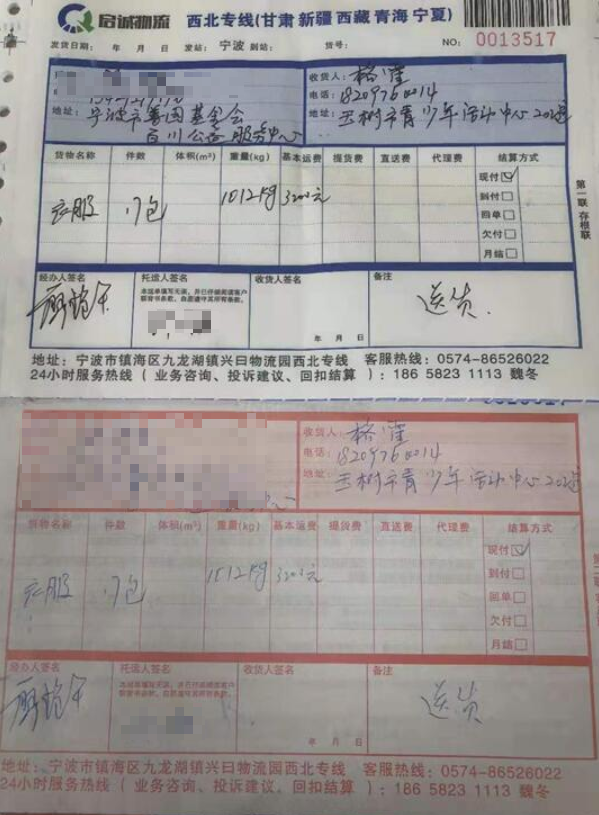 启诚物流 西北专线(甘肃 新疆 西藏 青海 宁夏)
发货日期: 年 月 日 发站: 宁波 到站: 货号: NO: 0013517
收货人: 格
电话: 18209760014
地址: 宁波市善园基金会
百川公益服务中心
地址: 玉树市青少年活动中心
货物名称 件数 体积(m³) 重量(kg) 基本运费 提货费 直送费 代理费 结算方式
衣服 17包 1012kg 3200元
现付☑
到付□
回单□
欠付□
月结□
第一联 存根联
经办人签名 托运人签名 收货人签名 备注
送货
年 月 日
地址: 宁波市镇海区九龙湖镇兴曰物流园西北专线 客服热线: 0574-86526022
24小时服务热线 ( 业务咨询、投诉建议、回扣结算 ) : 186 5823 1113 魏冬
收货人: 格
电话: 18209760014
地址: 玉树市青少年活动中心
货物名称 件数 体积(m³) 重量(kg) 基本运费 提货费 直送费 代理费 结算方式
衣服 17包 1012kg 3200元
现付☑
到付□
回单□
欠付□
月结□
经办人签名 托运人签名 收货人签名 备注
送货
年 月 日
地址: 宁波市镇海区九龙湖镇兴曰物流园西北专线 客服热线: 0574-86526022
24小时服务热线 ( 业务咨询、投诉建议、回扣结算 ) : 186 5823 1113 魏冬